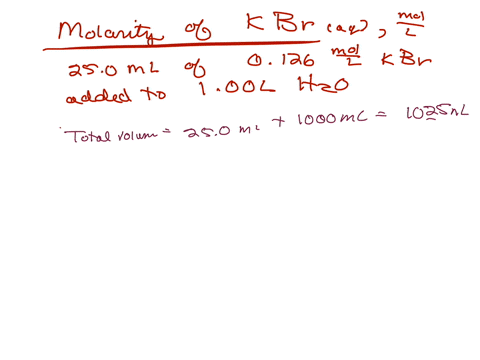 Molarity of KBr (aq), mol/L
25.0 mL of 0.126 mol/L KBr
added to 1.00L H2O
Total volum = 25.0 mL + 1000 mL = 1025 mL